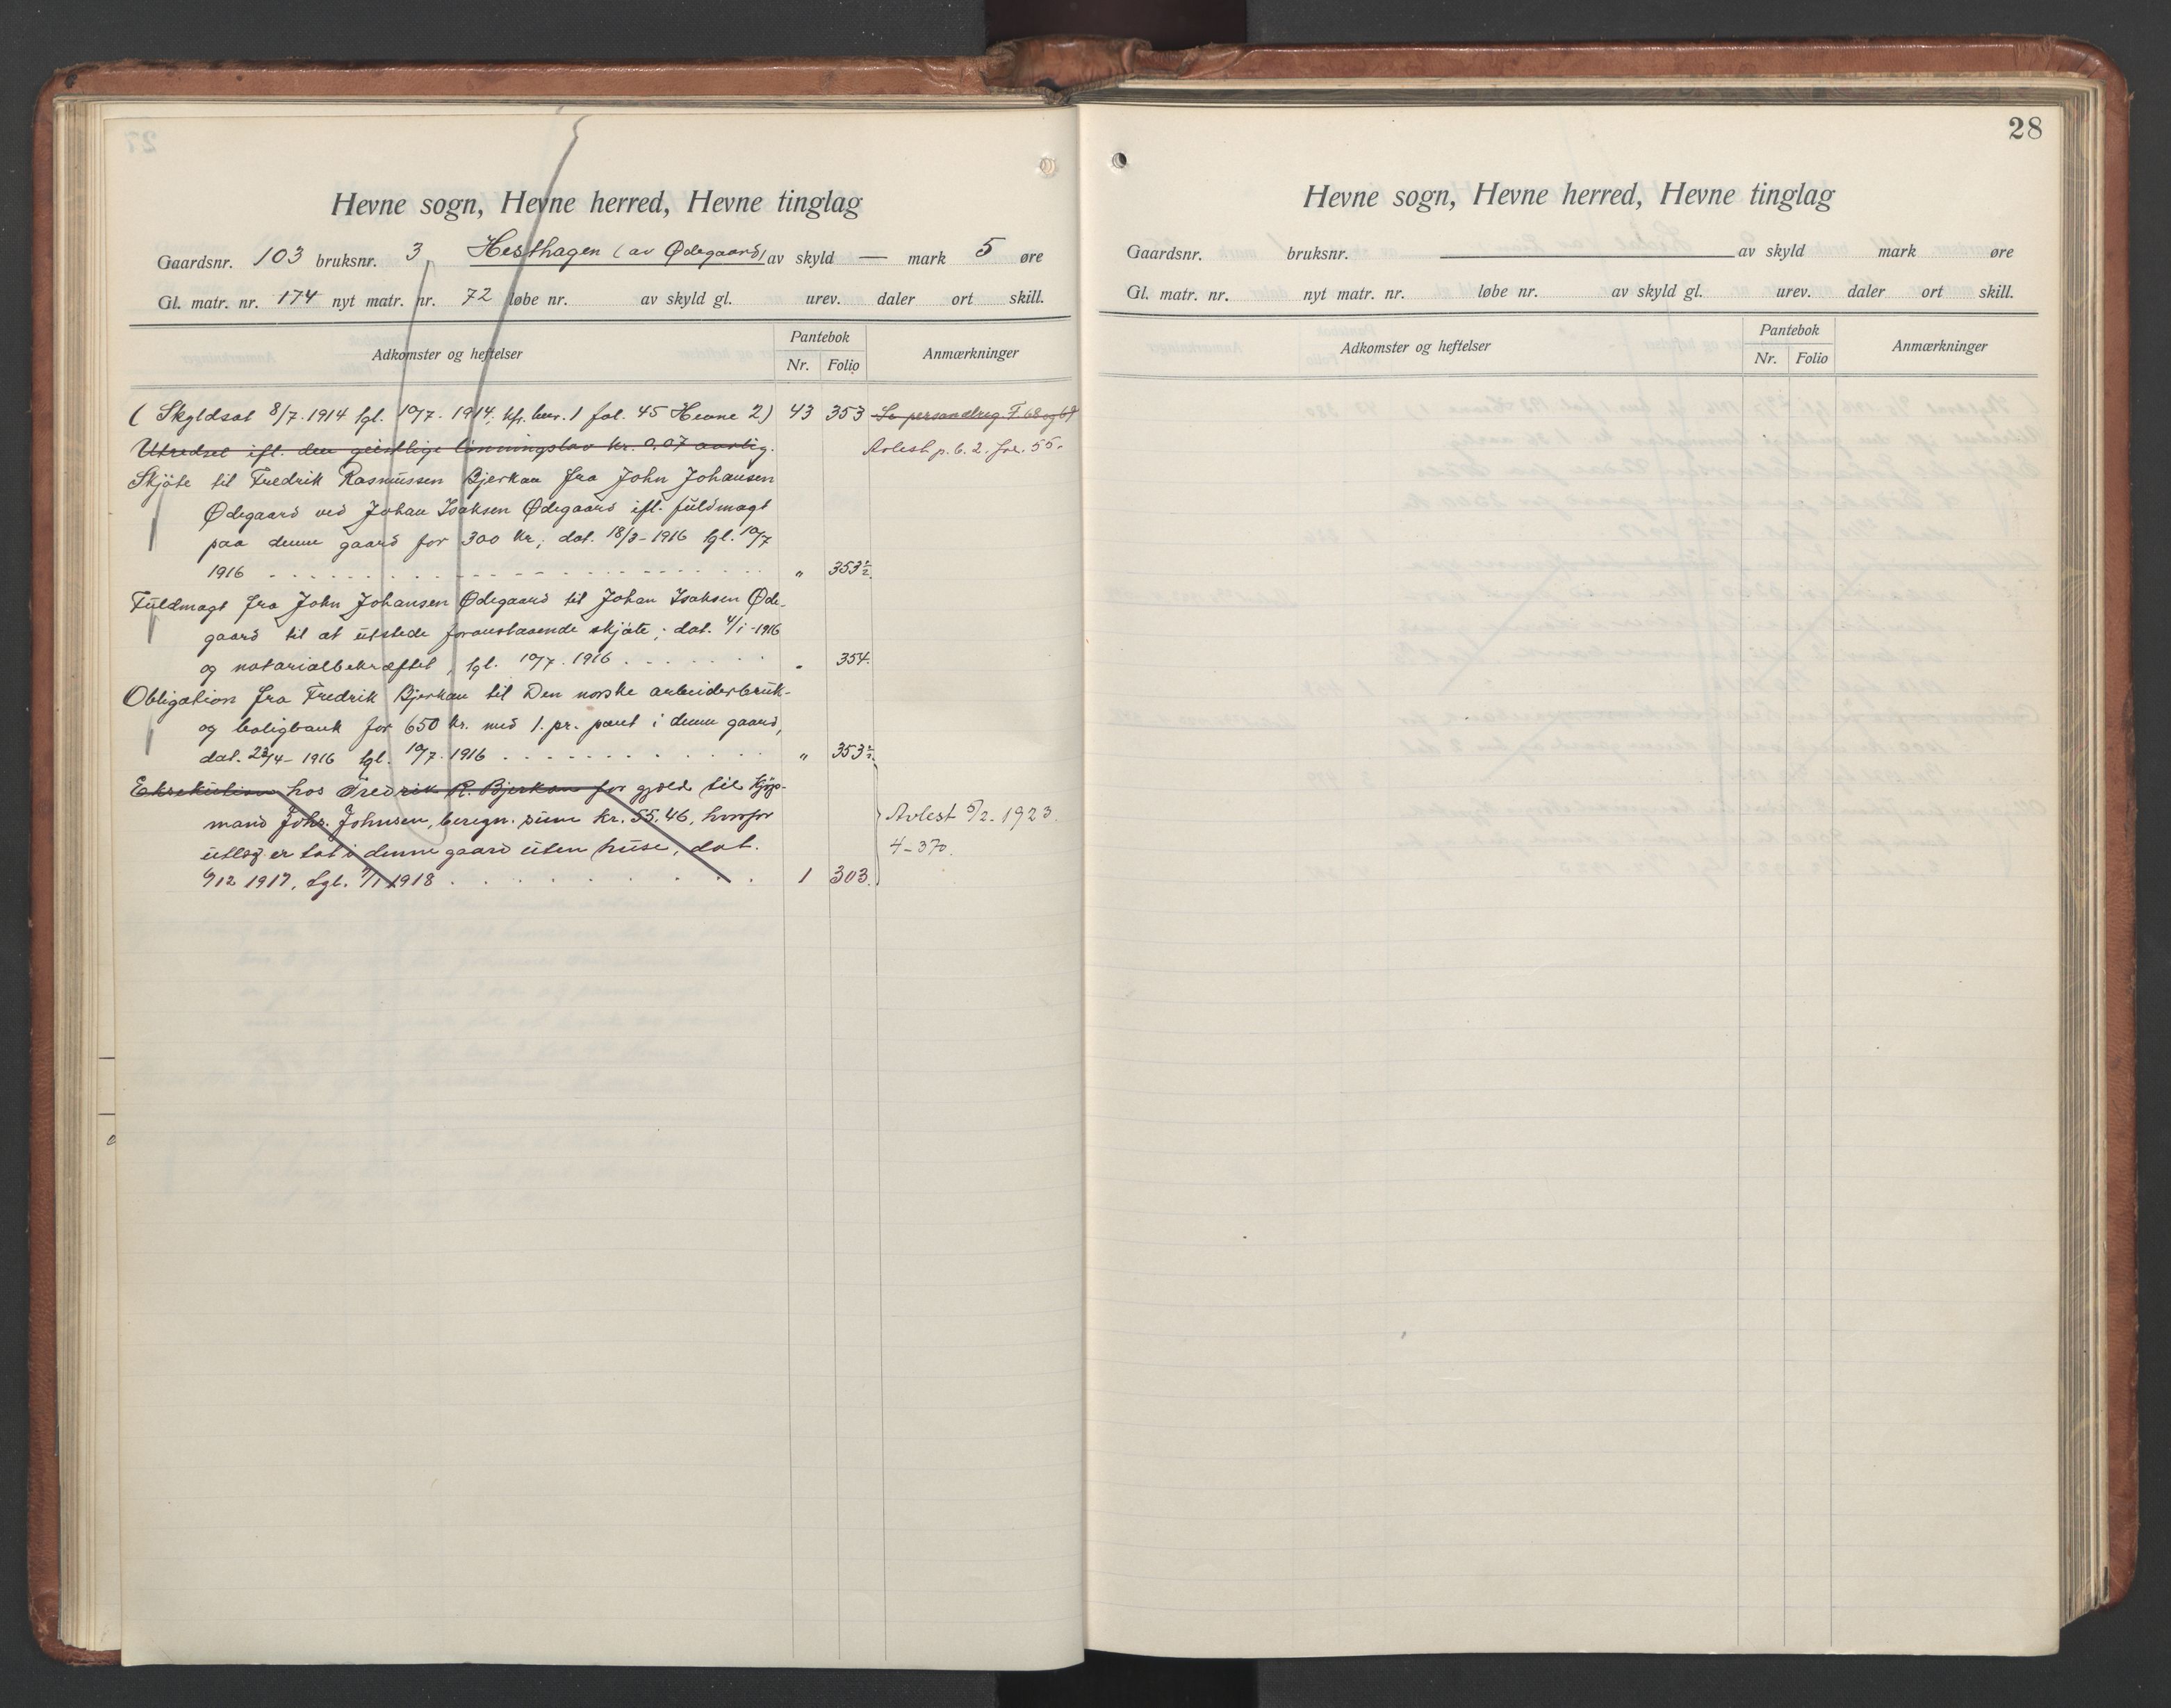 Hevne sogn, Hevne herred, Hevne tinglag
Gaardsnr. 103 bruksnr. 3, Hesthagen (av Ødegaard) av skyld — mark 5 øre
Gl. matr. nr. 174 nyt matr. nr. 72 løbe nr. av skyld gl. urev. daler ort skill.
Adkomster og heftelser Pantebok Nr. Folio Anmærkninger
( Skyldsat 8/7. 1914 tgl. 10/7. 1914, kfr. bev. 1 fol. 45 Hevne 2) 43 353 Se personalreg. F 68 og 69
Utredsel ifl. den geistlige lønningslov kr. 0,07 aarlig. Avlest p. b. 2. fol. 55.
Skjöte til Fredrik Rasmussen Bjerkan fra John Johansen
Ødegaard ved Johan Isaksen Ødegaard ifl. fuldmagt
paa denne gaard for 300 kr., dat. 18/3 - 1916 tgl. 10/7
1916 . . . . . . . . . . " 353½
Fuldmagt fra John Johansen Ødegaard til Johan Isaksen Øde-
gaard til at utstede foranstaaende skjöte; dat. 4/1 - 1916
og notarialbekræftet, tgl. 10/7. 1916 . . . . . . . " 354.
Obligation fra Fredrik Bjerkan til Den norske arbeiderbruk-
og boligbank for 650 kr. med 1. pr. pant i denne gaard,
dat. 22/4 - 1916 tgl. 10/7. 1916 . . . . . . . . . " 353½.
Eksekution hos Fredrik R. Bjerkan for gjæld til kjøp-
mand Johs. Johnsen, beregn. sum kr. 55.46, hvorfor Avlest 5/2. 1923.
utlæg er tat i denne gaard uten huse, dat. 4 - 370.
6/12 1917, tgl. 7/1 1918 . . . . . . . . . 1 303.
28
Hevne sogn, Hevne herred, Hevne tinglag
Gaardsnr. bruksnr. av skyld mark øre
Gl. matr. nr. nyt matr. nr. løbe nr. av skyld gl. urev. daler ort skill.
Adkomster og heftelser Pantebok Nr. Folio Anmærkninger